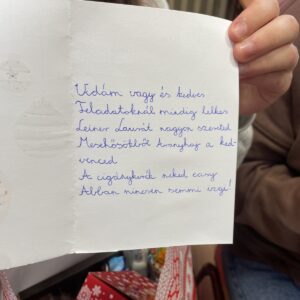 Vidám vagy és kedves
Feladatoknál mindig lelkes
Leiner Laurát nagyon szereted
Mesehősökből Aranyhaj a ked-
venced
A cigánykerék neked easy
Abban nincsen semmi vizi!